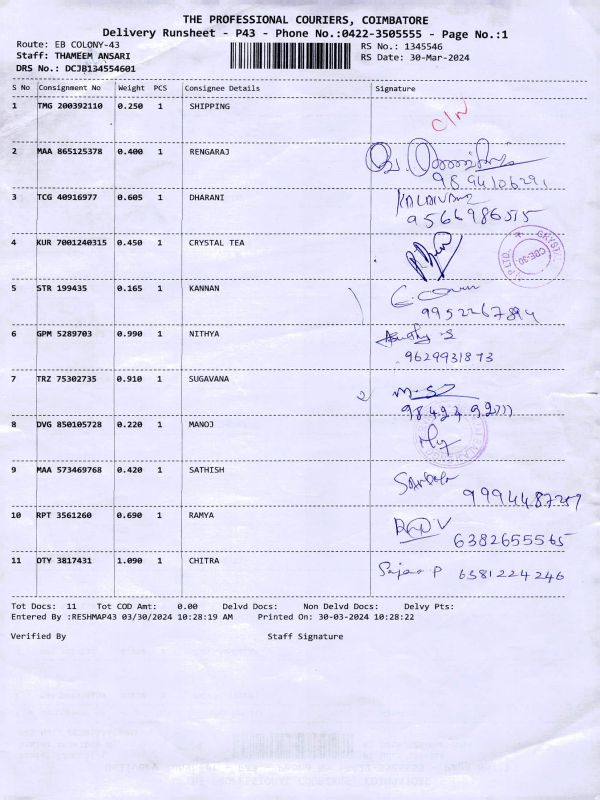 THE PROFESSIONAL COURIERS, COIMBATORE
Delivery Runsheet - P43 - Phone No.:0422-3505555 - Page No.:1
Route: EB COLONY-43 RS No.: 1345546
Staff: THAMEEM ANSARI RS Date: 30-Mar-2024
DRS No.: DCJB134554601
S No Consignment No Weight PCS Consignee Details Signature
1 TMG 200392110 0.250 1 SHIPPING C/N
2 MAA 865125378 0.400 1 RENGARAJ
3 TCG 40916977 0.605 1 DHARANI
9566986515
4 KUR 7001240315 0.450 1 CRYSTAL TEA
5 STR 199435 0.165 1 KANNAN
9952267894
6 GPM 5289703 0.990 1 NITHYA
9629931873
7 TRZ 75302735 0.910 1 SUGAVANA
8 DVG 850105728 0.220 1 MANOJ
9 MAA 573469768 0.420 1 SATHISH
10 RPT 3561260 0.690 1 RAMYA
6382655565
11 DTY 3817431 1.090 1 CHITRA
6381224246
Tot Docs: 11 Tot COD Amt: 0.00 Delvd Docs: Non Delvd Docs: Delvy Pts:
Entered By :RESHMAP43 03/30/2024 10:28:19 AM Printed On: 30-03-2024 10:28:22
Verified By Staff Signature